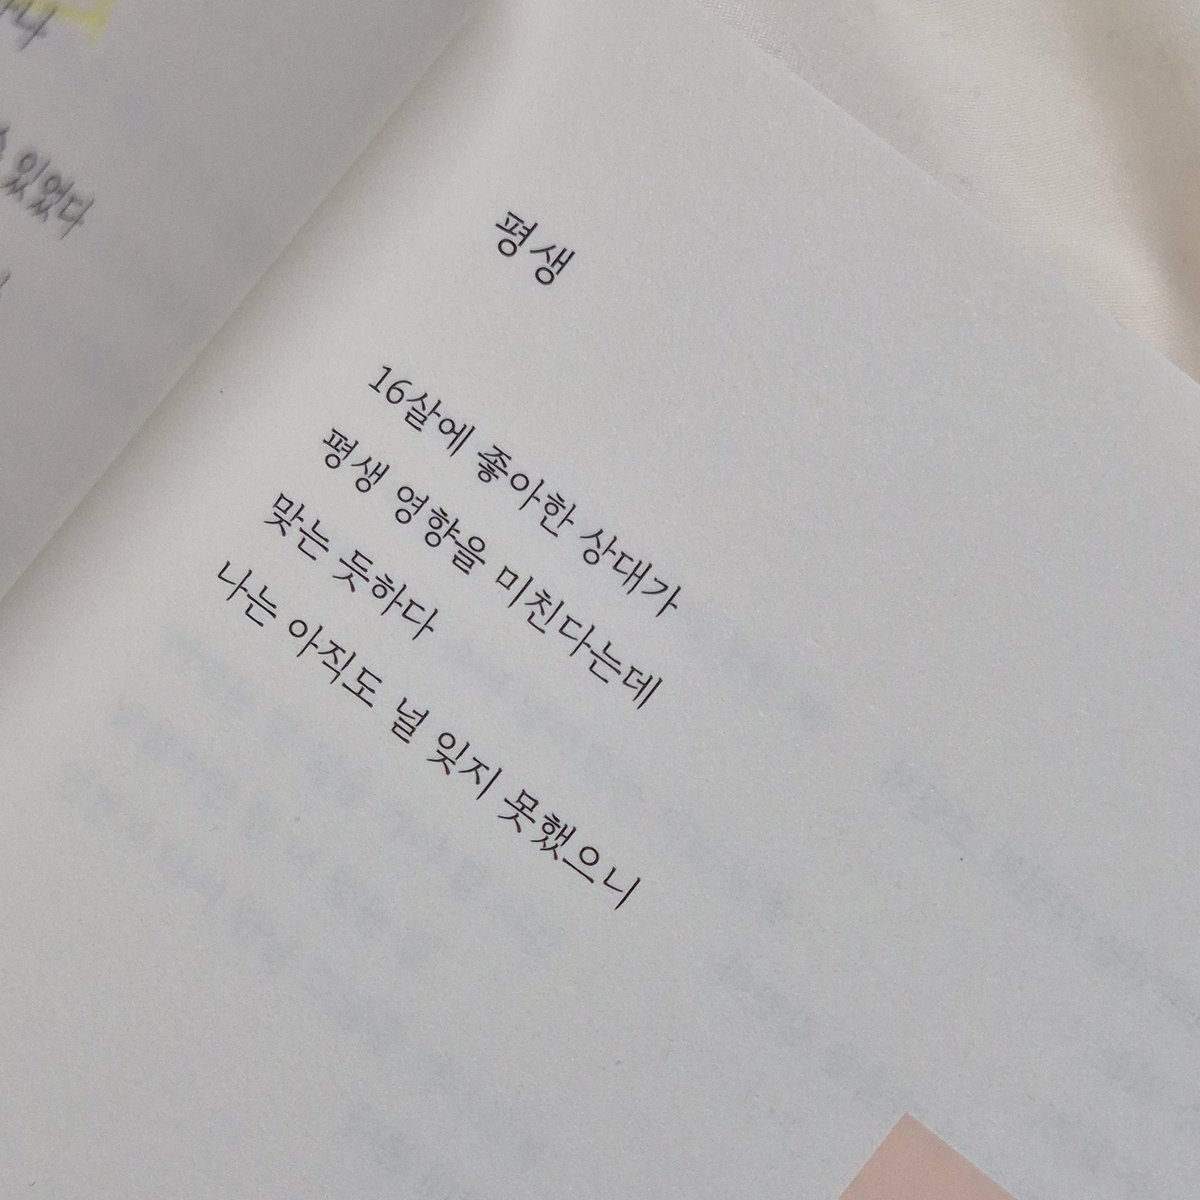 있었다
평생
16살에 좋아한 상대가
평생 영향을 미친다는데
맞는 듯하다
나는 아직도 널 잊지 못했으니